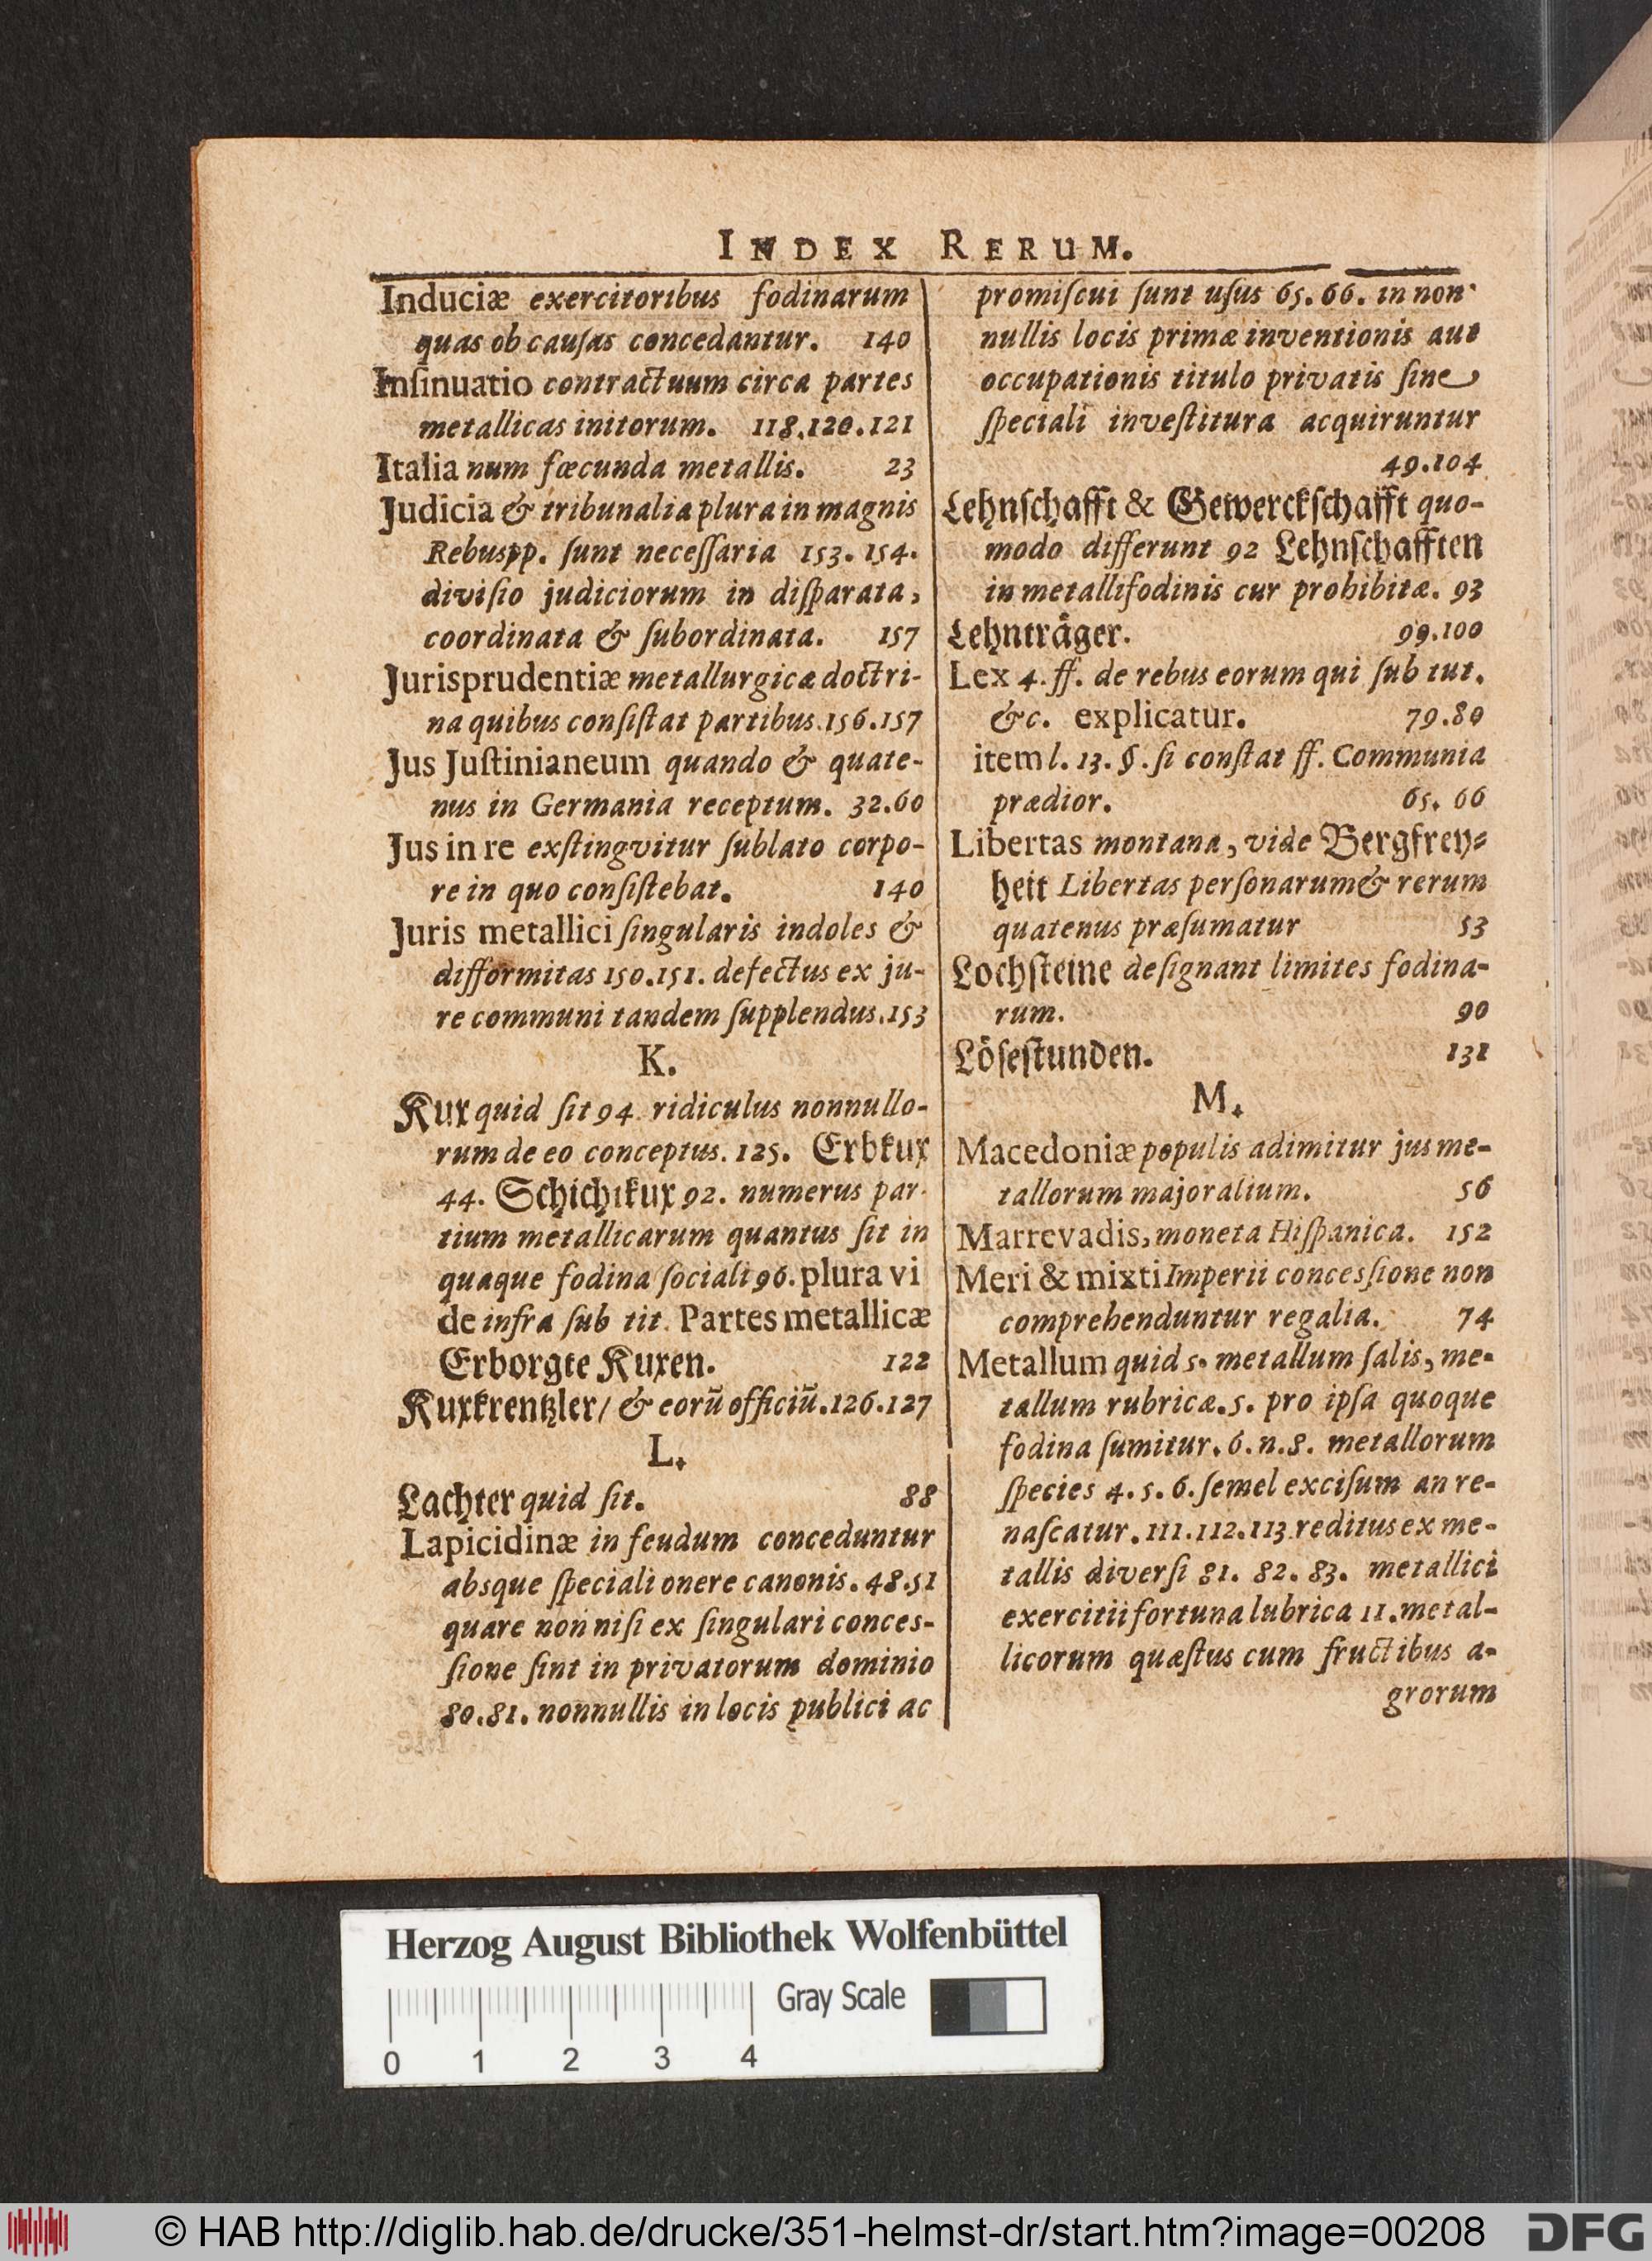 INDEX RERUM.
Induciæ exercitoribus fodinarum
quas ob cauſas concedantur. 140
Inſinuatio contractuum circa partes
metallicas initorum. 118.120.121
Italia num fœcunda metallis. 23
Judicia & tribunalia plura in magnis
Rebuspp. ſunt neceſſaria 153. 154.
diviſio judiciorum in diſparata,
coordinata & ſubordinata. 157
Jurisprudentiæ metallurgicæ doctri-
na quibus conſiſtat partibus. 156.157
Jus Juſtinianeum quando & quate-
nus in Germania receptum. 32.60
Jus in re exſtingvitur ſublato corpo-
re in quo conſiſtebat. 140
Juris metallici ſingularis indoles &
difformitas 150.151. defectus ex ju-
re communi tandem ſupplendus. 153
K.
Kux quid ſit 94. ridiculus nonnullo-
rum de eo conceptus. 125. Erbkux
44. Schichtkux 92. numerus par-
tium metallicarum quantus ſit in
quaque fodina ſociali 96. plura vi
de infra ſub tit. Partes metallicæ
Erborgte Kuxen. 122
Kuxkrentzler/ & eorū officiū. 126.127
L.
Lachter quid ſit. 88
Lapicidinæ in feudum conceduntur
absque ſpeciali onere canonis. 48.51
quare non niſi ex ſingulari conces-
ſione ſint in privatorum dominio
80.81. nonnullis in locis publici ac
promiſcui ſunt uſus 65.66. in non-
nullis locis primæ inventionis aut
occupationis titulo privatis ſine
ſpeciali inveſtitura acquiruntur
49.104
Lehnſchafft & Gewerckſchafft quo-
modo differunt 92 Lehnſchafften
in metallifodinis cur prohibitæ. 93
Lehnträger. 99.100
Lex 4. ff. de rebus eorum qui ſub tut.
&c. explicatur. 79.80
item l. 13. §. ſi conſtat ff. Communia
prædior. 65. 66
Libertas montana, vide Bergfrey-
heit Libertas perſonarum & rerum
quatenus præſumatur 53
Lochſteine deſignant limites fodina-
rum. 90
Löſeſtunden. 131
M.
Macedoniæ populis adimitur jus me-
tallorum majoralium. 56
Marrevadis, moneta Hiſpanica. 152
Meri & mixti Imperii conceſſione non
comprehenduntur regalia. 74
Metallum quid 5. metallum ſalis, me-
tallum rubricæ. 5. pro ipſa quoque
fodina ſumitur. 6. n. 8. metallorum
ſpecies 4. 5. 6. ſemel exciſum an re-
naſcatur. 111.112.113 reditus ex me-
tallis diverſi 81. 82. 83. metallici
exercitii fortuna lubrica 11. metal-
licorum quæſtus cum fructibus a-
grorum
Herzog August Bibliothek Wolfenbüttel
Gray Scale
0 1 2 3 4
© HAB http://diglib.hab.de/drucke/351-helmst-dr/start.htm?image=00208
DFG